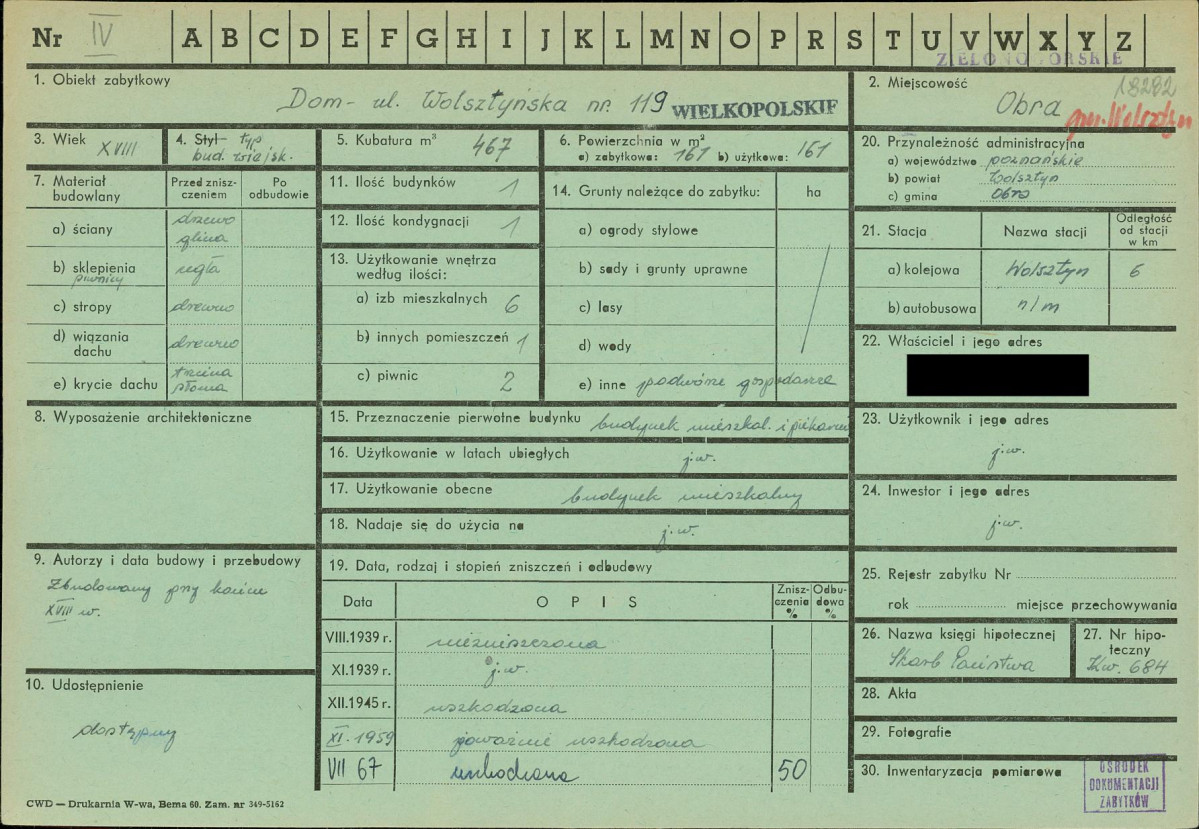 Nr IV A B C D E F G H I J K L M N O P R S T U V W X Y Z
ZIELONOGÓRSKIE
1. Obiekt zabytkowy
Dom - ul. Wolsztyńska nr. 119 WIELKOPOLSKIE
2. Miejscowość 18282
Obra gm. Wolsztyn
3. Wiek XVIII
4. Styl typ
bud. wiejsk.
5. Kubatura m³ 467
6. Powierzchnia w m²
a) zabytkowa: 161 b) użytkowa: 161
20. Przynależność administracyjna
a) województwo poznańskie
b) powiat Wolsztyn
c) gmina Obra
7. Materiał budowlany
Przed zniszczeniem
Po odbudowie
a) ściany drzewo
glina
b) sklepienia cegła
piwnicy
c) stropy drewno
d) wiązania dachu drewno
e) krycie dachu trzcina
słoma
11. Ilość budynków 1
12. Ilość kondygnacji 1
13. Użytkowanie wnętrza
według ilości:
a) izb mieszkalnych 6
b) innych pomieszczeń 1
c) piwnic 2
14. Grunty należące do zabytku: ha
a) ogrody stylowe
b) sady i grunty uprawne
c) lasy
d) wody
e) inne podwórze gospodarcze
21. Stacja Nazwa stacji Odległość od stacji w km
a) kolejowa Wolsztyn 6
b) autobusowa n/m
22. Właściciel i jego adres
8. Wyposażenie architektoniczne
15. Przeznaczenie pierwotne budynku budynek mieszkal. i piekarnia
16. Użytkowanie w latach ubiegłych j.w.
17. Użytkowanie obecne budynek mieszkalny
18. Nadaje się do użycia na j.w.
23. Użytkownik i jego adres
j.w.
24. Inwestor i jego adres
j.w.
9. Autorzy i data budowy i przebudowy
Zbudowany przy końcu
XVIII w.
19. Data, rodzaj i stopień zniszczeń i odbudowy
Data OPIS Zniszczenia % Odbudowa %
VIII.1939 r. niezniszczona
XI.1939 r. j.w.
XII.1945 r. uszkodzona
XI.1959 poważnie uszkodzona
VII 67 uszkodzona 50
25. Rejestr zabytku Nr
rok miejsce przechowywania
26. Nazwa księgi hipotecznej
Skarb Państwa
27. Nr hipoteczny
Kw. 684
10. Udostępnienie
dostępny
28. Akta
29. Fotografie
30. Inwentaryzacja pomiarowa
OŚRODEK
DOKUMENTACJI
ZABYTKÓW
CWD — Drukarnia W-wa, Bema 60. Zam. nr 349-5162